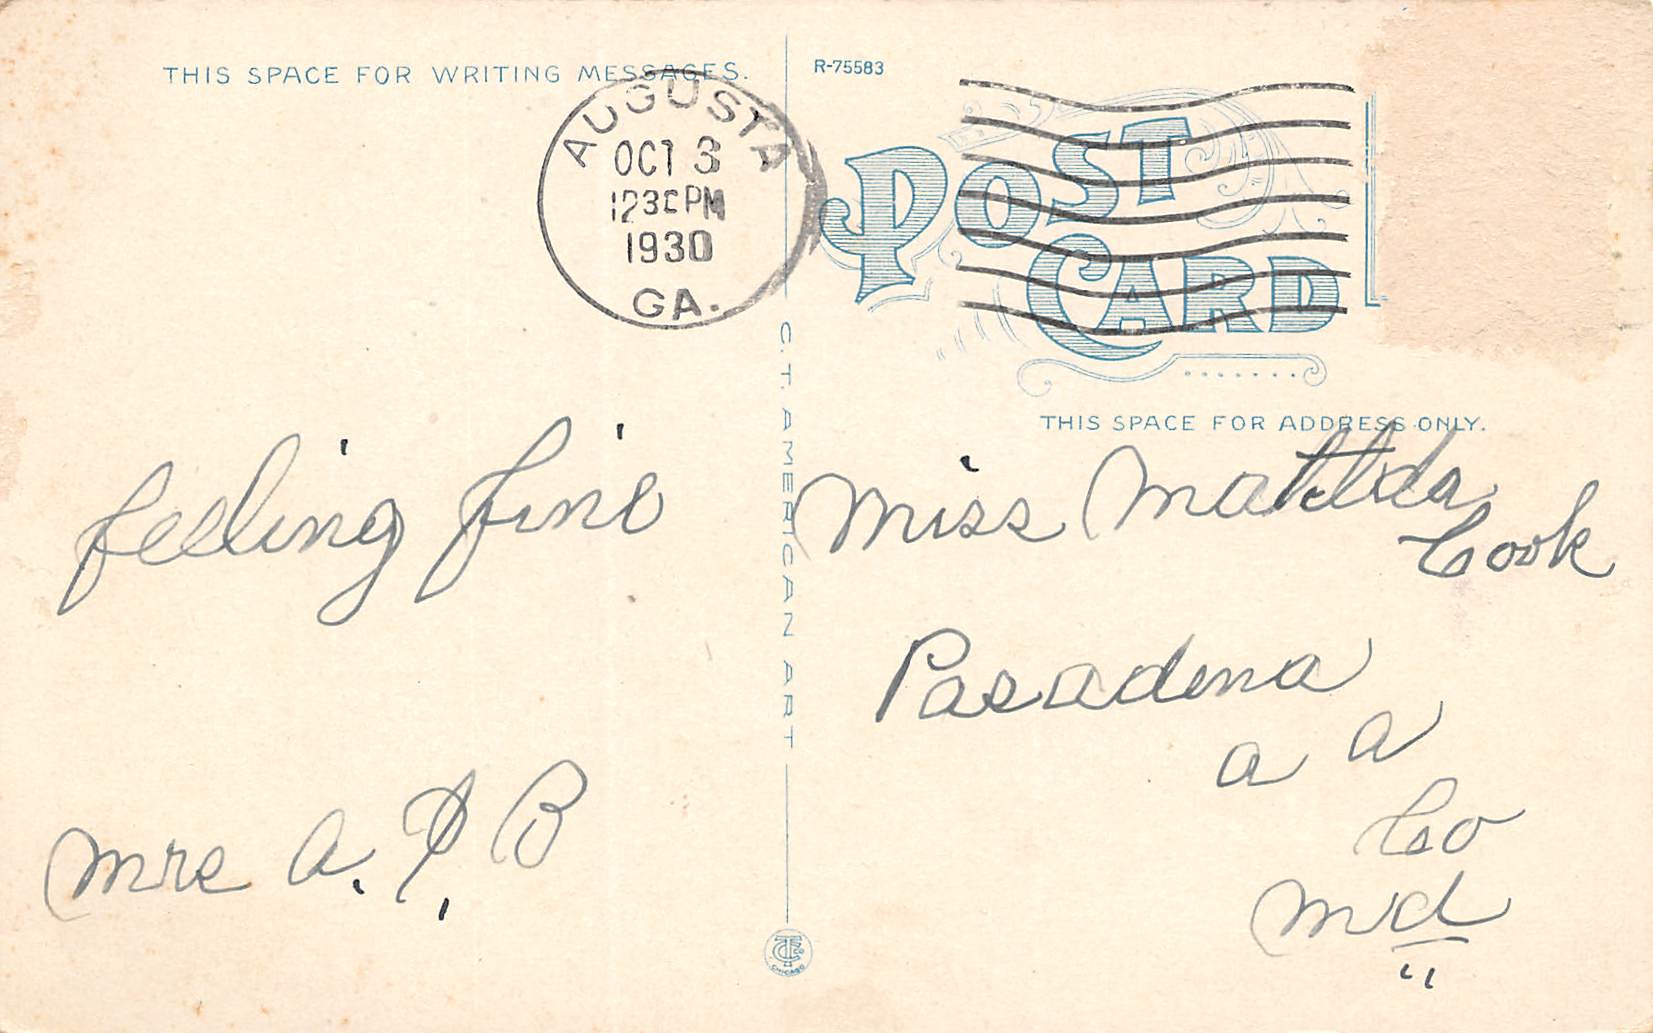 THIS SPACE FOR WRITING MESSAGES.
R-75583
AUGUSTA
OCT 3
1230 PM
1930
GA.
POST
CARD
THIS SPACE FOR ADDRESS ONLY.
C. T. AMERICAN ART
feeling fine
Mrs A. B
Miss Matilda
Cook
Pasadena
a a
Co
Md
CHICAGO